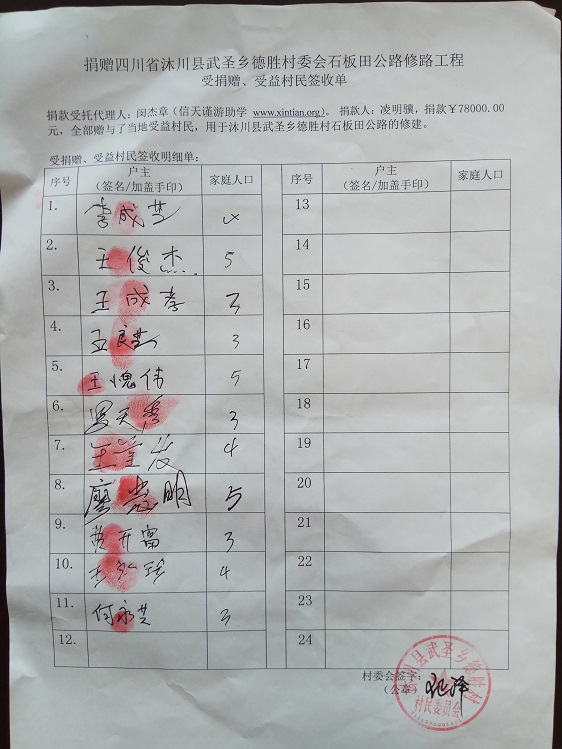 捐赠四川省沐川县武圣乡德胜村委会石板田公路修路工程
受捐赠、受益村民签收单
捐款受托代理人：闵杰章（信天谨游助学 www.xintian.org）。 捐款人：凌明骥，捐款￥78000.00
元，全部赠与了当地受益村民，用于沐川县武圣乡德胜村石板田公路的修建。
受捐赠、受益村民签收明细单：
序号 户主（签名/加盖手印） 家庭人口 序号 户主（签名/加盖手印） 家庭人口
1. 李成芝 13
2. 王俊杰 5 14
3. 王成孝 3 15
4. 王良 3 16
5. 王愧伟 5 17
6. 罗天秀 3 18
7. 王 4 19
8. 廖崇明 5 20
9. 黄开富 3 21
10. 4 22
11. 何永芝 3 23
12. 24
村委会签字：
（公章）
沐川县武圣乡德胜村
村民委员会